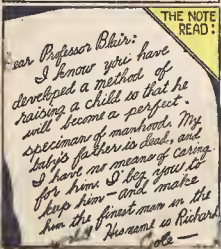 THE NOTE
READ:
ear Professor Blair:
I know you have
developed a method of
raising a child so that he
will become a perfect
specimam of manhood. My
baby's father is dead, and
I have no means of caring
for him. I beg you to
keep him — and make
him the finest man in the
His name is Richard
ole